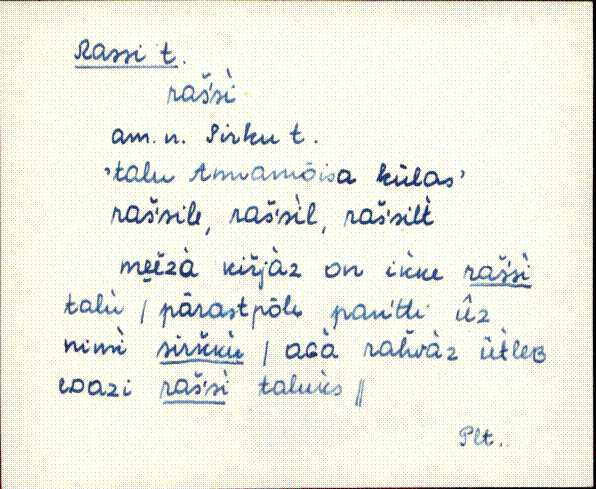 Rassi t.
raš̀sì̬
am. n. Sirku t.
'talu Annamõisa külas'
raš̀sile, raš̀sìl, raš̀silt̀
meĕzà kiřjàz on ikke raš̀sì
talù / pārastpōle pan'tti ǖz
nimì siřkkù / aGà rahvàz ütleB
edazi raš̀sì talùks //
Plt.